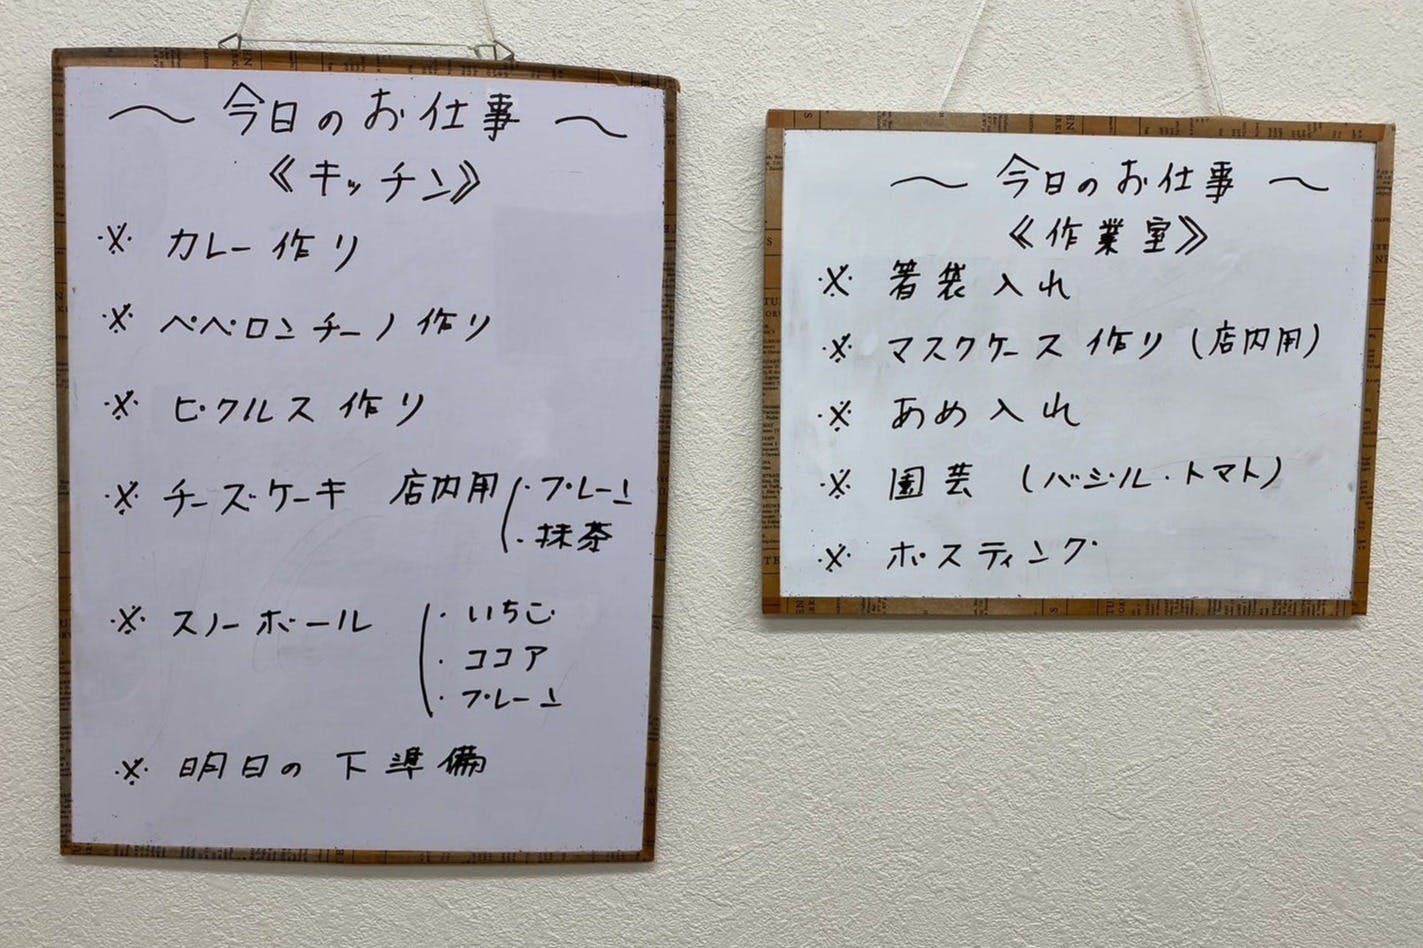 〜 今日のお仕事 〜
《キッチン》
※ カレー作り
※ ペペロンチーノ作り
※ ピクルス作り
※ チーズケーキ 店内用 ・プレーン
・抹茶
※ スノーボール ・いちご
・ココア
・プレーン
※ 明日の下準備
〜 今日のお仕事 〜
《作業室》
※ 箸袋入れ
※ マスクケース作り(店内用)
※ あめ入れ
※ 園芸 (バジル・トマト)
※ ポスティング